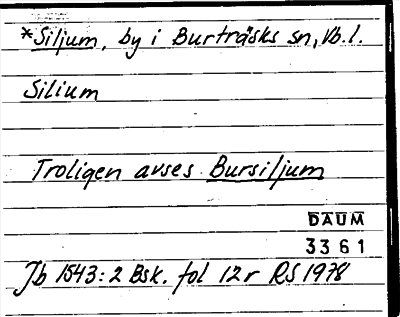 *Siljum, by i Burträsks sn, Vb. l.
Silium
Troligen avses Bursiljum
DAUM
3361
Jb 1543:2 Bsk. fol 12r RS 1978